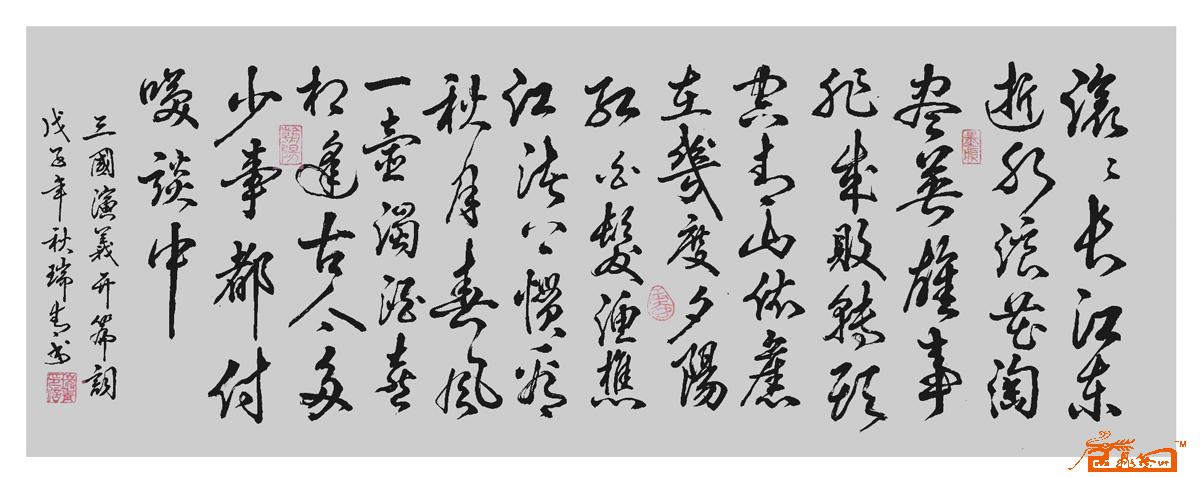 滚滚长江东
逝水浪花淘
尽英雄是
非成败转头
空青山依舊
在幾度夕陽
红白髮渔樵
江渚上惯看
秋月春风
一壺濁酒喜
相逢古今多
少事都付
笑談中
三國演義开篇詞
戊子年秋瑞书